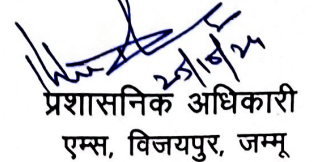 25/10/24
प्रशासनिक अधिकारी
एम्स, विजयपुर, जम्मू